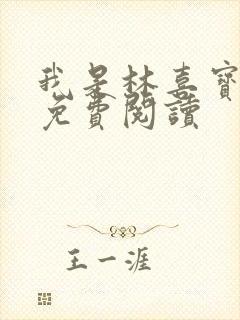 我是林喜寶
免費閱讀
王一涯